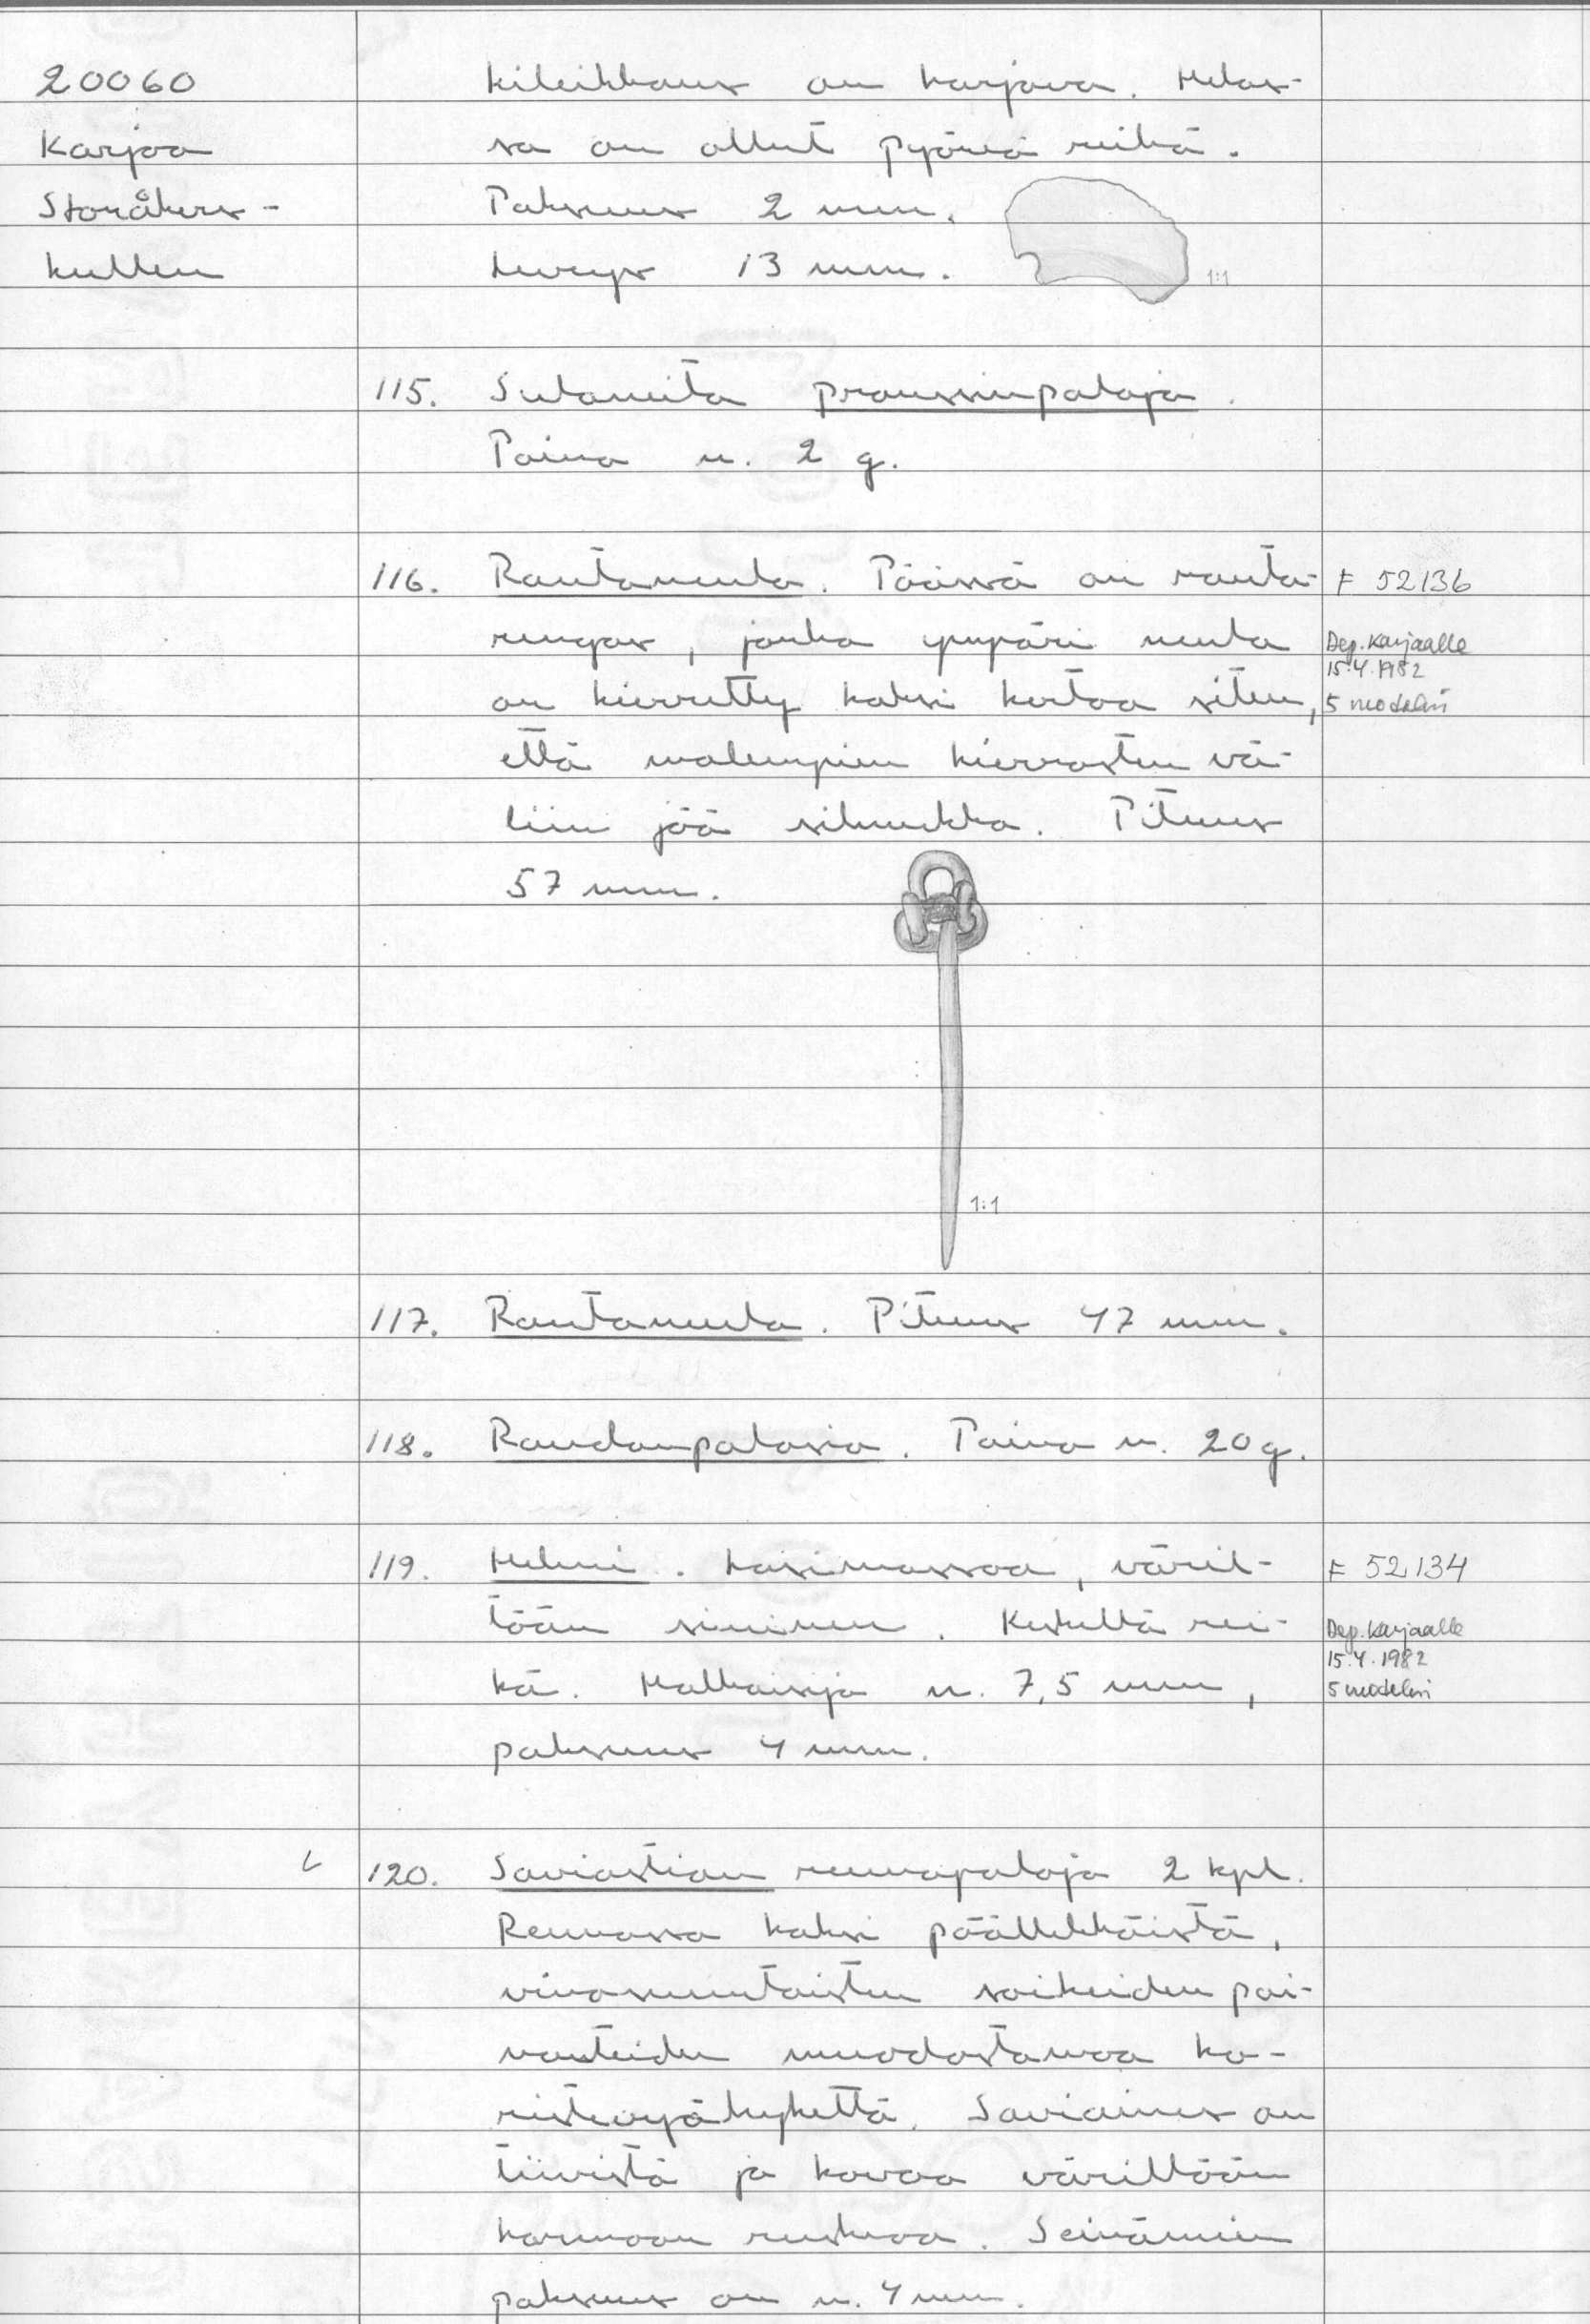 20060
Karjaa
Storåkers-
kullen
kileikkaus on karjava. Helas-
sa on ollut pyöreä reikä.
Paksuus 2 mm.
Leveys 13 mm.
1:1
115. Sulaneita pronssinpaloja.
Paino n. 2 g.
116. Rautaneula. Päässä on rauta-
rengas, jonka ympäri neula
on kierretty kaksi kertaa siten,
että molempien kierrosten vä-
liin jää silmukka. Pituus
57 mm.
F 52136
Dep. Karjaalle
15.4.1982
1:1
117. Rautaneula. Pituus 47 mm.
118. Raudanpalasia. Paino n. 20 g.
119. Helmi. Lasimassaa, väril-
tään sininen. Keskellä rei-
kä. Halkaisija n. 7,5 mm,
paksuus 4 mm.
F 52134
Dep. Karjaalle
15.4.1982
120. Saviastian reunapaloja 2 kpl.
Reunassa kaksi päällekkäistä,
vinosuuntaisten soikeiden pai-
nanteiden muodostamaa ko-
ristevyöhykettä. Saviaines on
tiivistä ja kovaa väriltään
harmaan ruskeaa. Seinämien
paksuus on n. 4 mm.